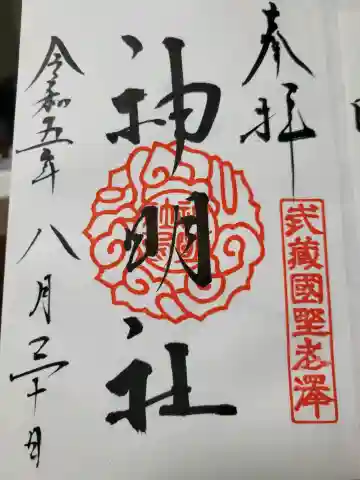 奉拝
武蔵國野老澤
神明社
令和五年八月三十日